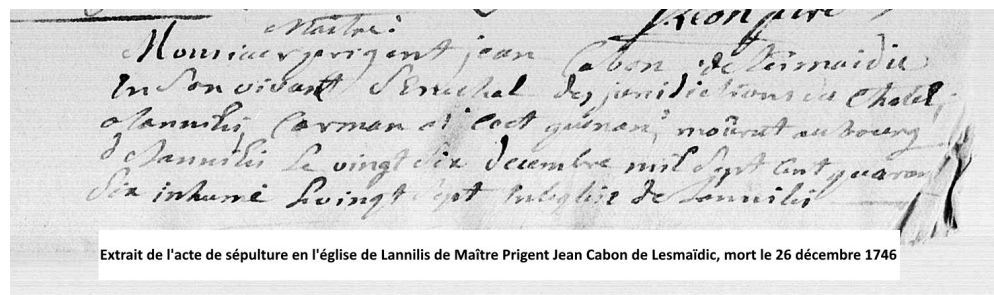 Maitre
Monsieur prigent jean Cabon de Lesmaidic
En Son vivant Senechal des juridictions du Chatel,
Lannilis, Carman et Coet quenan, mourut au bourg
de Lannilis Le vingt Six decembre mil Sept Cent quaran
Six inhumé Le vingt Sept En leglise de Lannilis
Extrait de l'acte de sépulture en l'église de Lannilis de Maître Prigent Jean Cabon de Lesmaïdic, mort le 26 décembre 1746